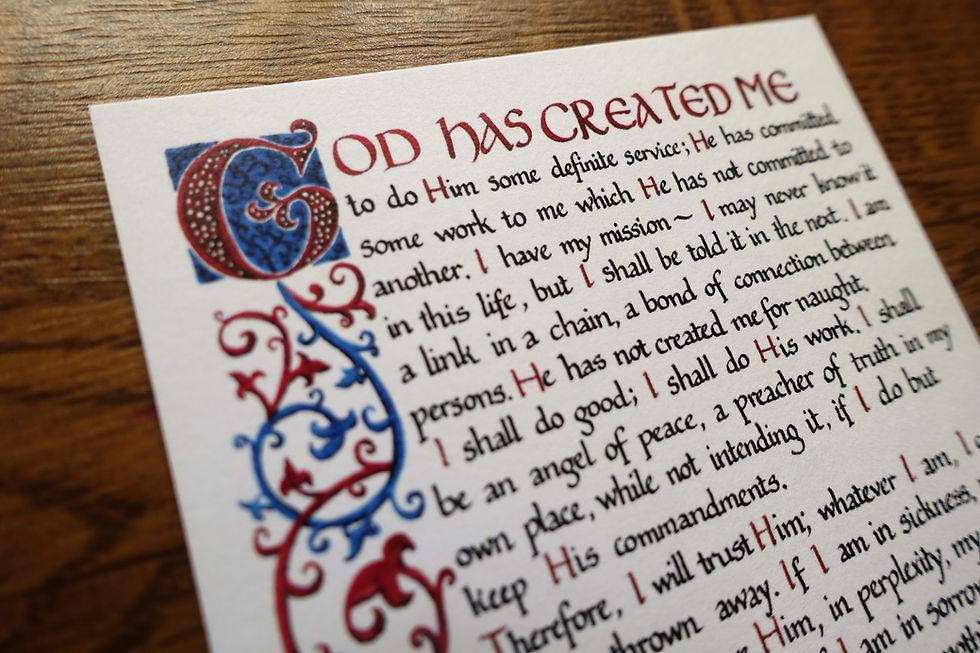 GOD HAS CREATED ME
to do Him some definite service; He has committed
some work to me which He has not committed to
another. I have my mission~ I may never know it
in this life, but I shall be told it in the next. I am
a link in a chain, a bond of connection between
persons. He has not created me for naught.
I shall do good; I shall do His work. I shall
be an angel of peace, a preacher of truth in my
own place, while not intending it, if I do but
keep His commandments.
Therefore, I will trust Him; whatever I am, I
thrown away. If I am in sickness
Him, in perplexity, my
I am in sorrow